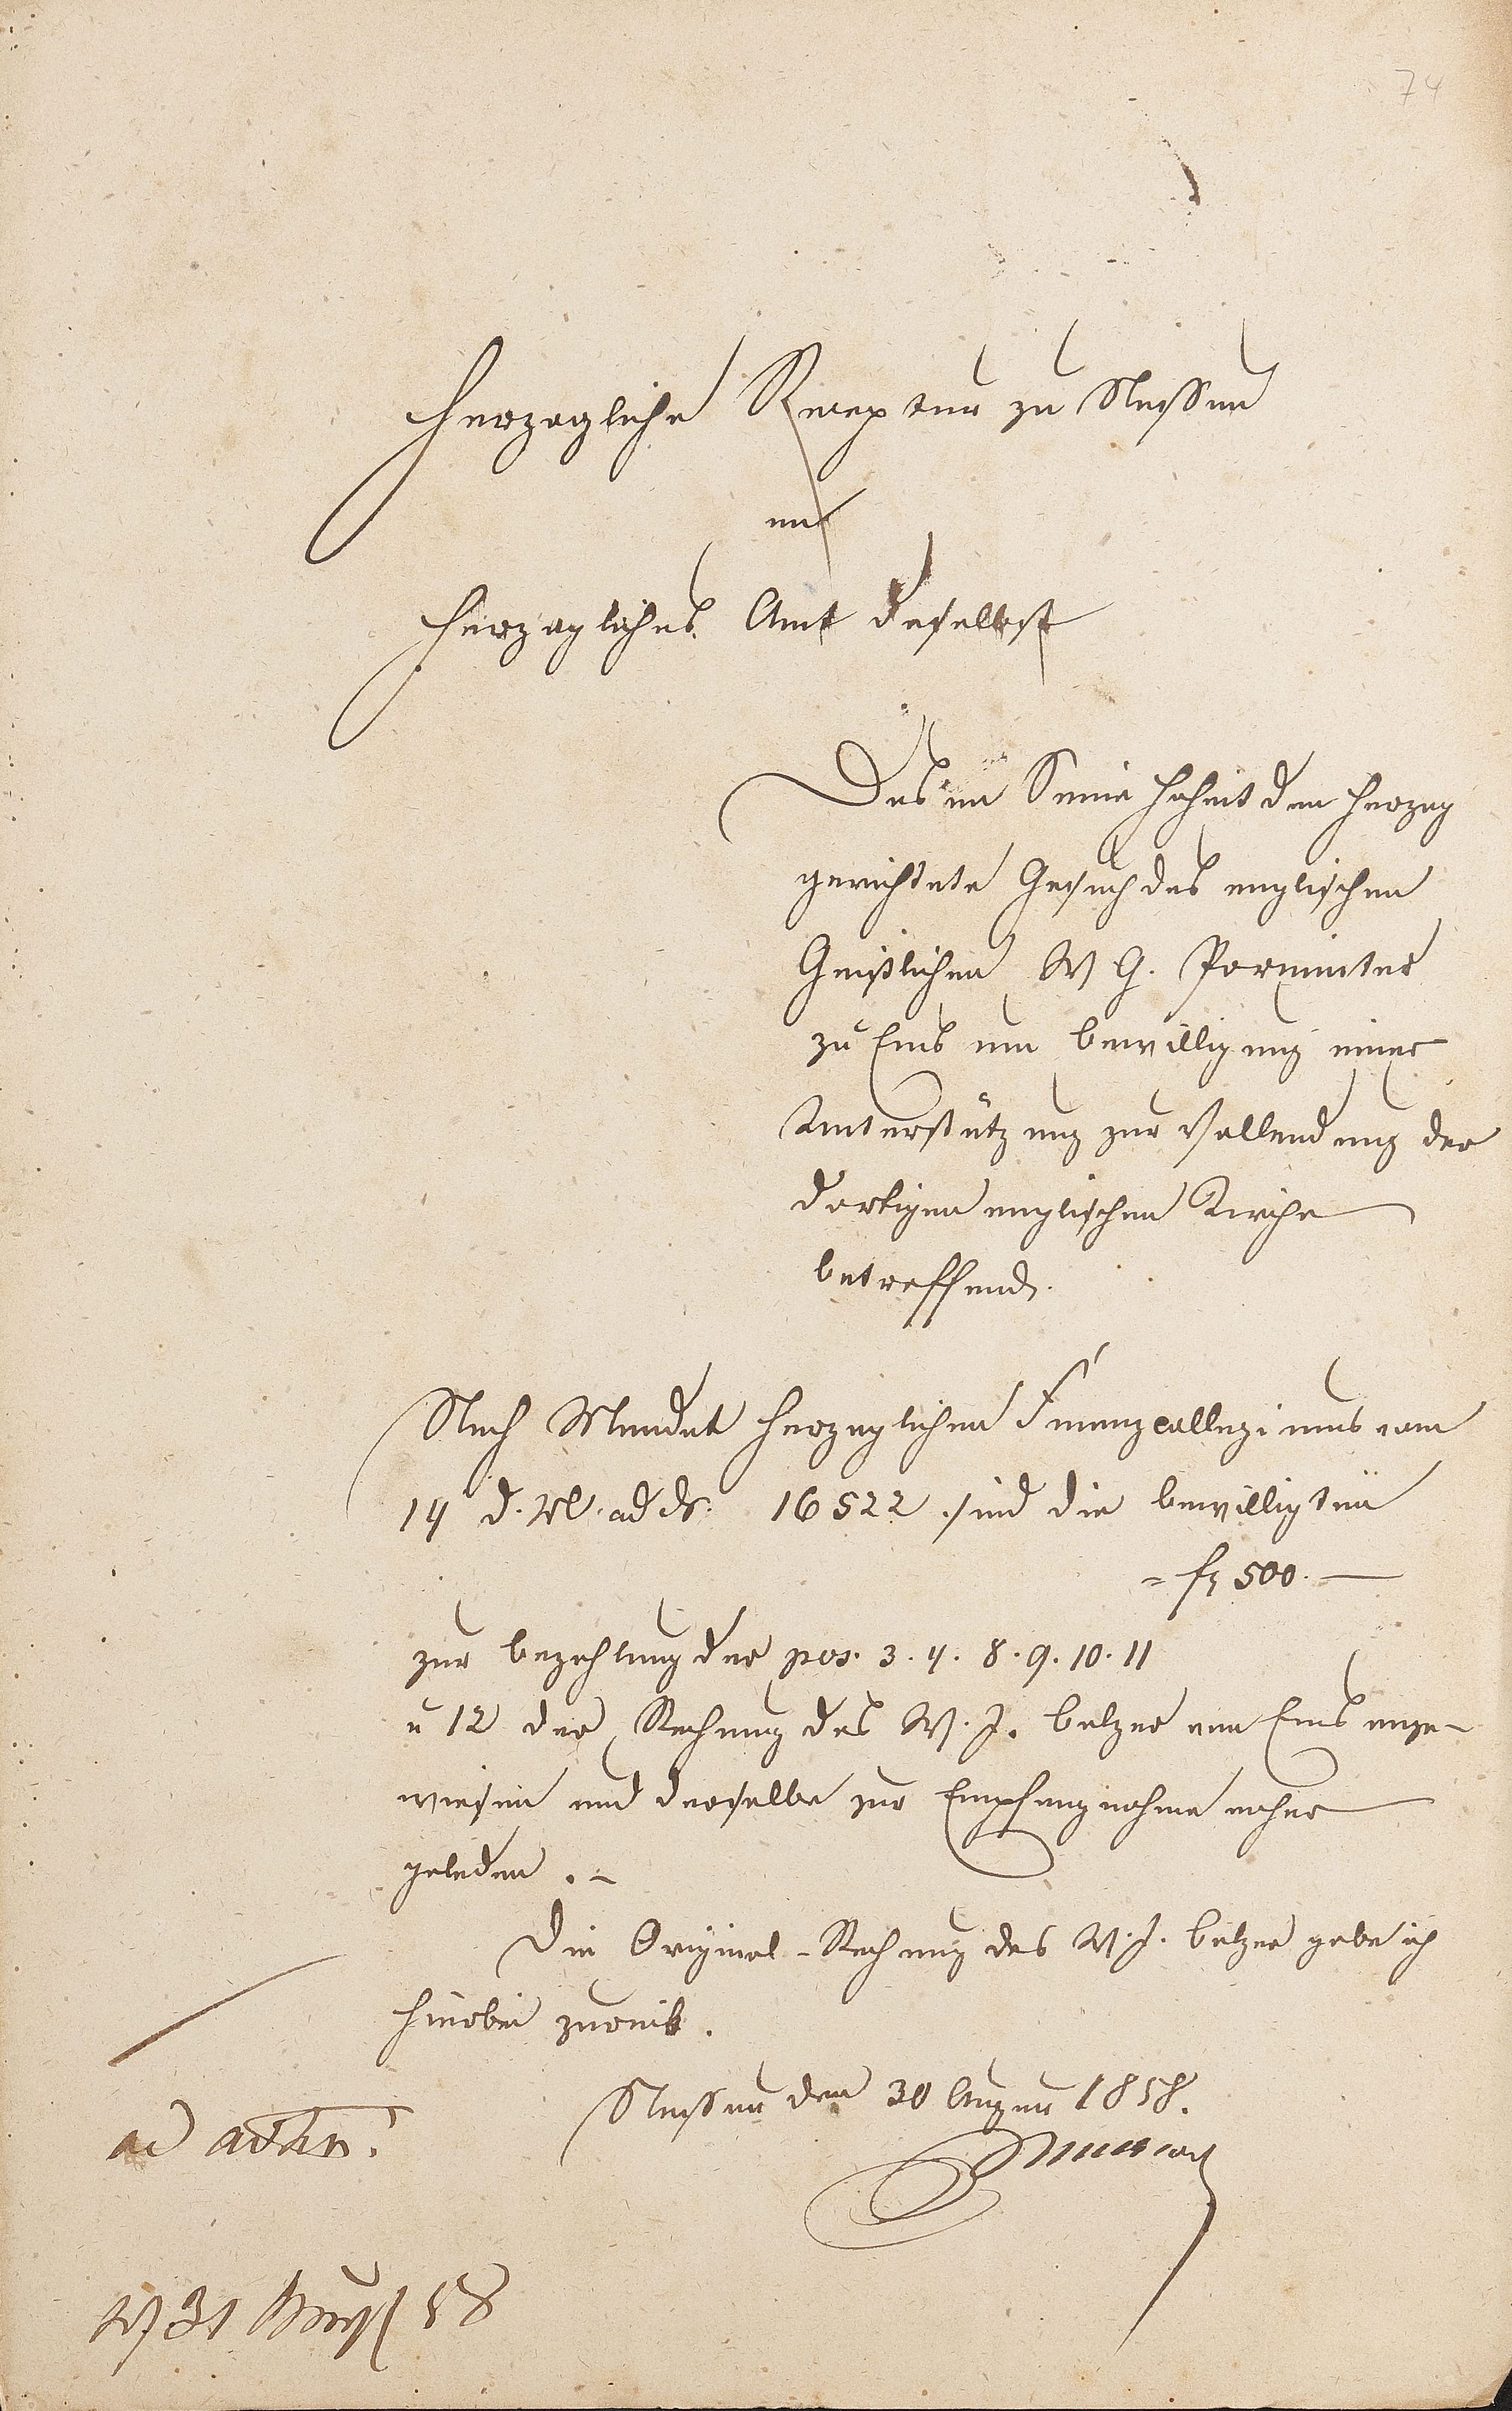 74
Herzogliche Receptur zu Nassau
an
Herzogliches Amt daselbst
Das an Seine Hoheit den Herzog
gerichtete Gesuch des englischen
Geistlichen W G.
zu Ems um Bewilligung einer
Unterstützung zur Vollendung der
dortigen englischen Kirche
betreffend.
Nach Mandat Herzoglichen Finanzcollegiums vom
14 d. M. ad 16522 sind die bewilligten
= f 500. —
zur Bezahlung der pos. 3. 4. 8. 9. 10. 11
u 12 der Rechnung des W. J. Balzer von Ems ange-
wiesen und derselbe zur Empfangnahme
geladen. -
Die Original-Rechnung des W. J. Balzer gebe ich
hierbei zurück.
Nassau den 30 August 1858.
ad acta.
N 31 Aug 58